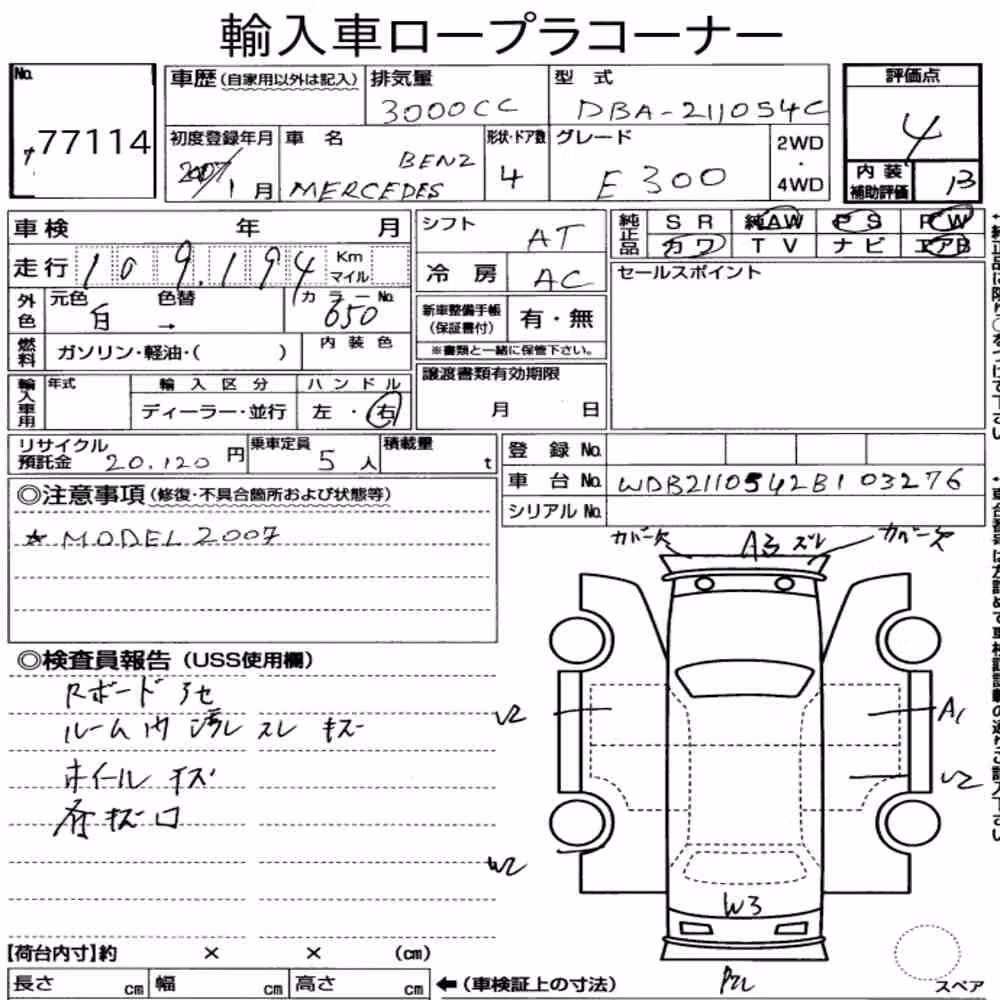 輸入車ロープラコーナー
No. 77114
車歴(自家用以外は記入) 排気量 3000CC 型式 DBA-211054C 評価点 4
初度登録年月 2007/1月 車名 BENZ MERCEDES 形状・ドア数 4 グレード E300 2WD・4WD 内装補助評価 B
車検 年 月 シフト AT 純正品 SR 純AW PS PW
走行 109,194 Km マイル 冷房 AC カワ TV ナビ エアB
外色 元色 白 色替 → カラーNo. 650 新車整備手帳(保証書付) 有・無 セールスポイント
燃料 ガソリン・軽油・( ) 内装色 ※書類と一緒に保管下さい。
輸入車用 年式 輸入区分 ディーラー・並行 ハンドル 左・右 譲渡書類有効期限 月 日
リサイクル預託金 20,120円 乗車定員 5人 積載量 t 登録No.
車台No. WDB2110542B103276
シリアルNo.
◎注意事項(修復・不具合箇所および状態等)
☆MODEL 2007
カバー欠 A3 ズレ カバー欠
◎検査員報告(USS使用欄)
Rボード アセ
ルーム内 汚レ スレ キズ
U2 A1
ホイール キズ
U2
キズ
W2
W3
【荷台内寸】約 × × (cm)
長さ cm 幅 cm 高さ cm ←(車検証上の寸法) スペア